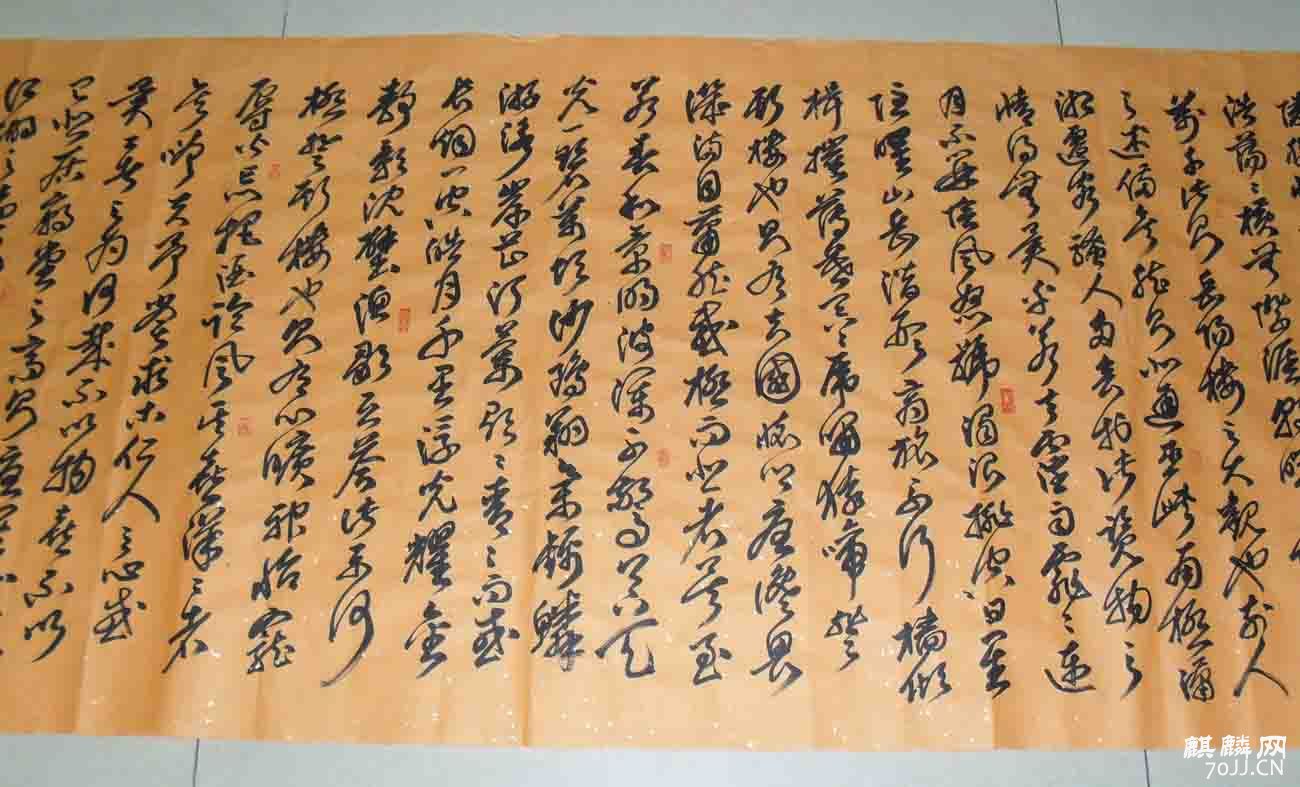 浩蕩〻橫無際涯朝暉
萬千此則岳陽樓之大觀也前人
之述備矣然則北通巫峽南極瀟
湘遷客騷人多會於此覽物之
情得無異乎若夫霪雨霏〻連
月不開陰風怒號濁浪排空日星
隱曜山岳潛形商旅不行檣傾
楫摧薄暮冥〻虎嘯猿啼登
斯樓也則有去國懷鄉憂讒畏
譏滿目蕭然感極而悲者矣至
若春和景明波瀾不驚上下天
光一碧萬頃沙鷗翔集錦鱗
游泳岸芷汀蘭郁〻青〻而或
長煙一空皓月千里浮光耀金
靜影沉璧漁歌互答此樂何
極登斯樓也則有心曠神怡寵
辱皆忘把酒臨風其喜洋〻者
矣嗟夫予嘗求古仁人之心或
異二者之為何哉不以物喜不以
己悲居廟堂之高則憂其
江湖之遠
麒麟网
70JJ.CN